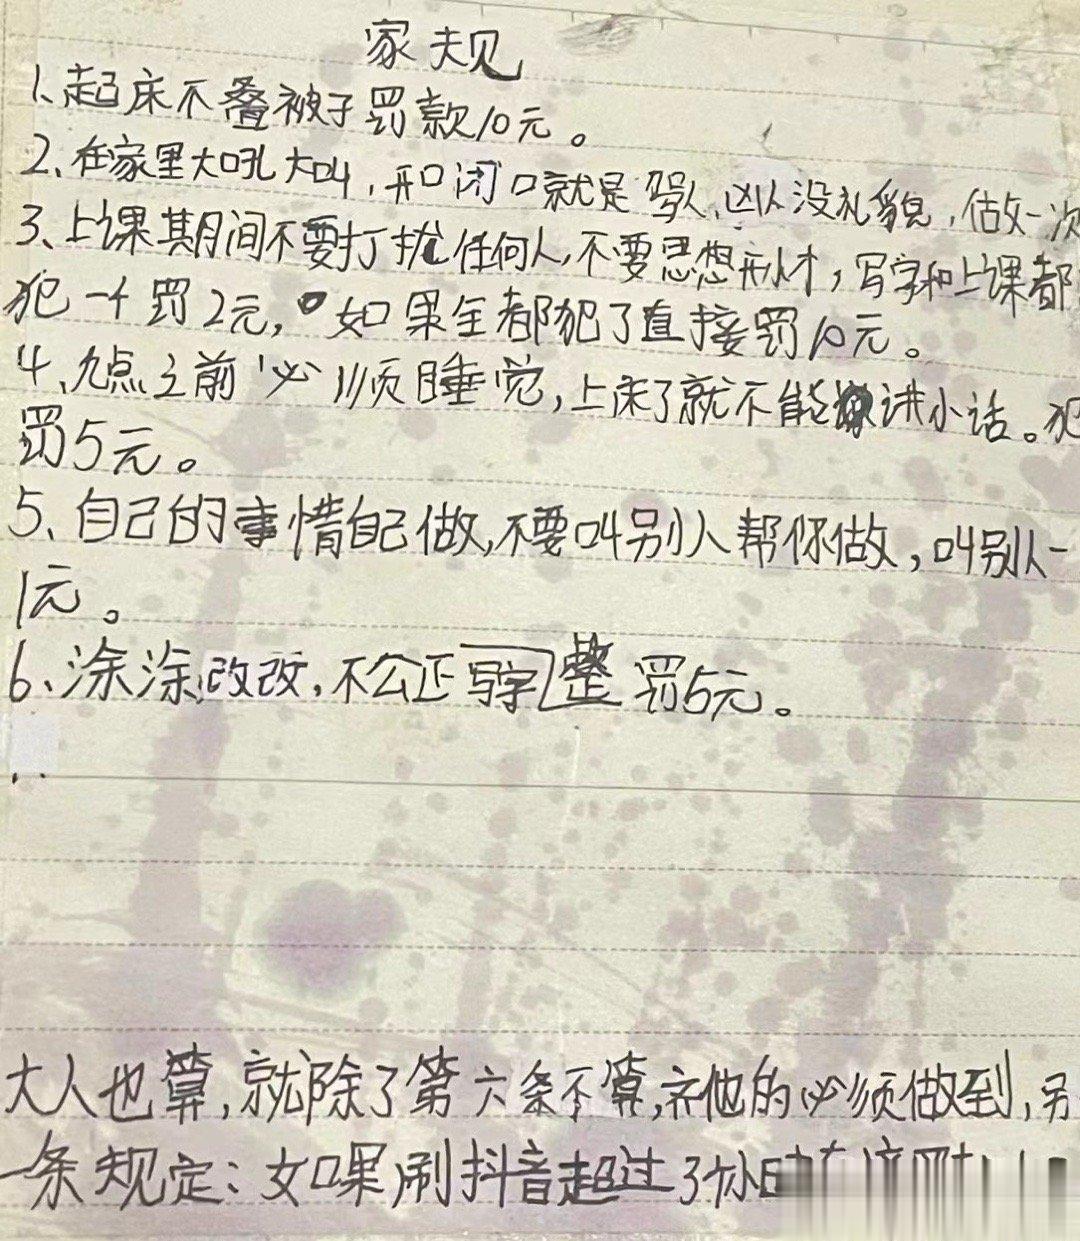 家规
1、起床不叠被子罚款10元。
2、在家里大吼大叫,开口闭口就是骂人,凶人没礼貌,做一次
3、上课期间不要打扰任何人,不要思想开小才,写字和上课都
犯一个罚2元,如果全都犯了直接罚10元。
4、九点之前必须睡觉,上床了就不能讲小话。犯
罚5元。
5、自己的事情自己做,不要叫别人帮你做,叫别人一
1元。
6、涂涂改改,不公正写字整罚5元。
大人也算,就除了第六条不算,其他的必须做到,另
一条规定:如果刷抖音超过3个小时